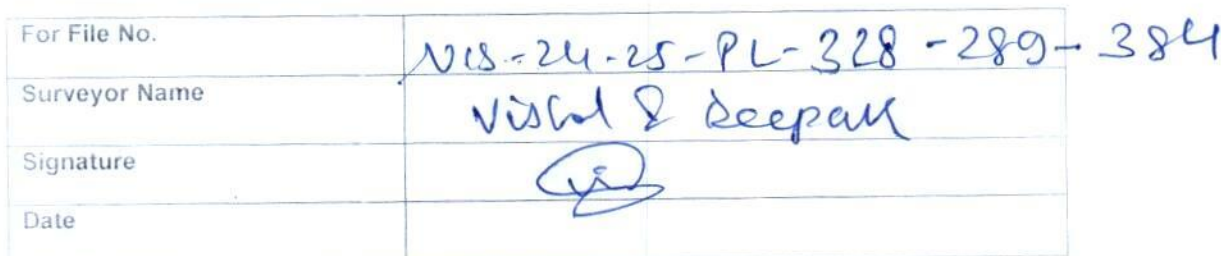 For File No. VIS-24-25-PL-328-289-384
Surveyor Name Vishal & Deepak
Signature
Date